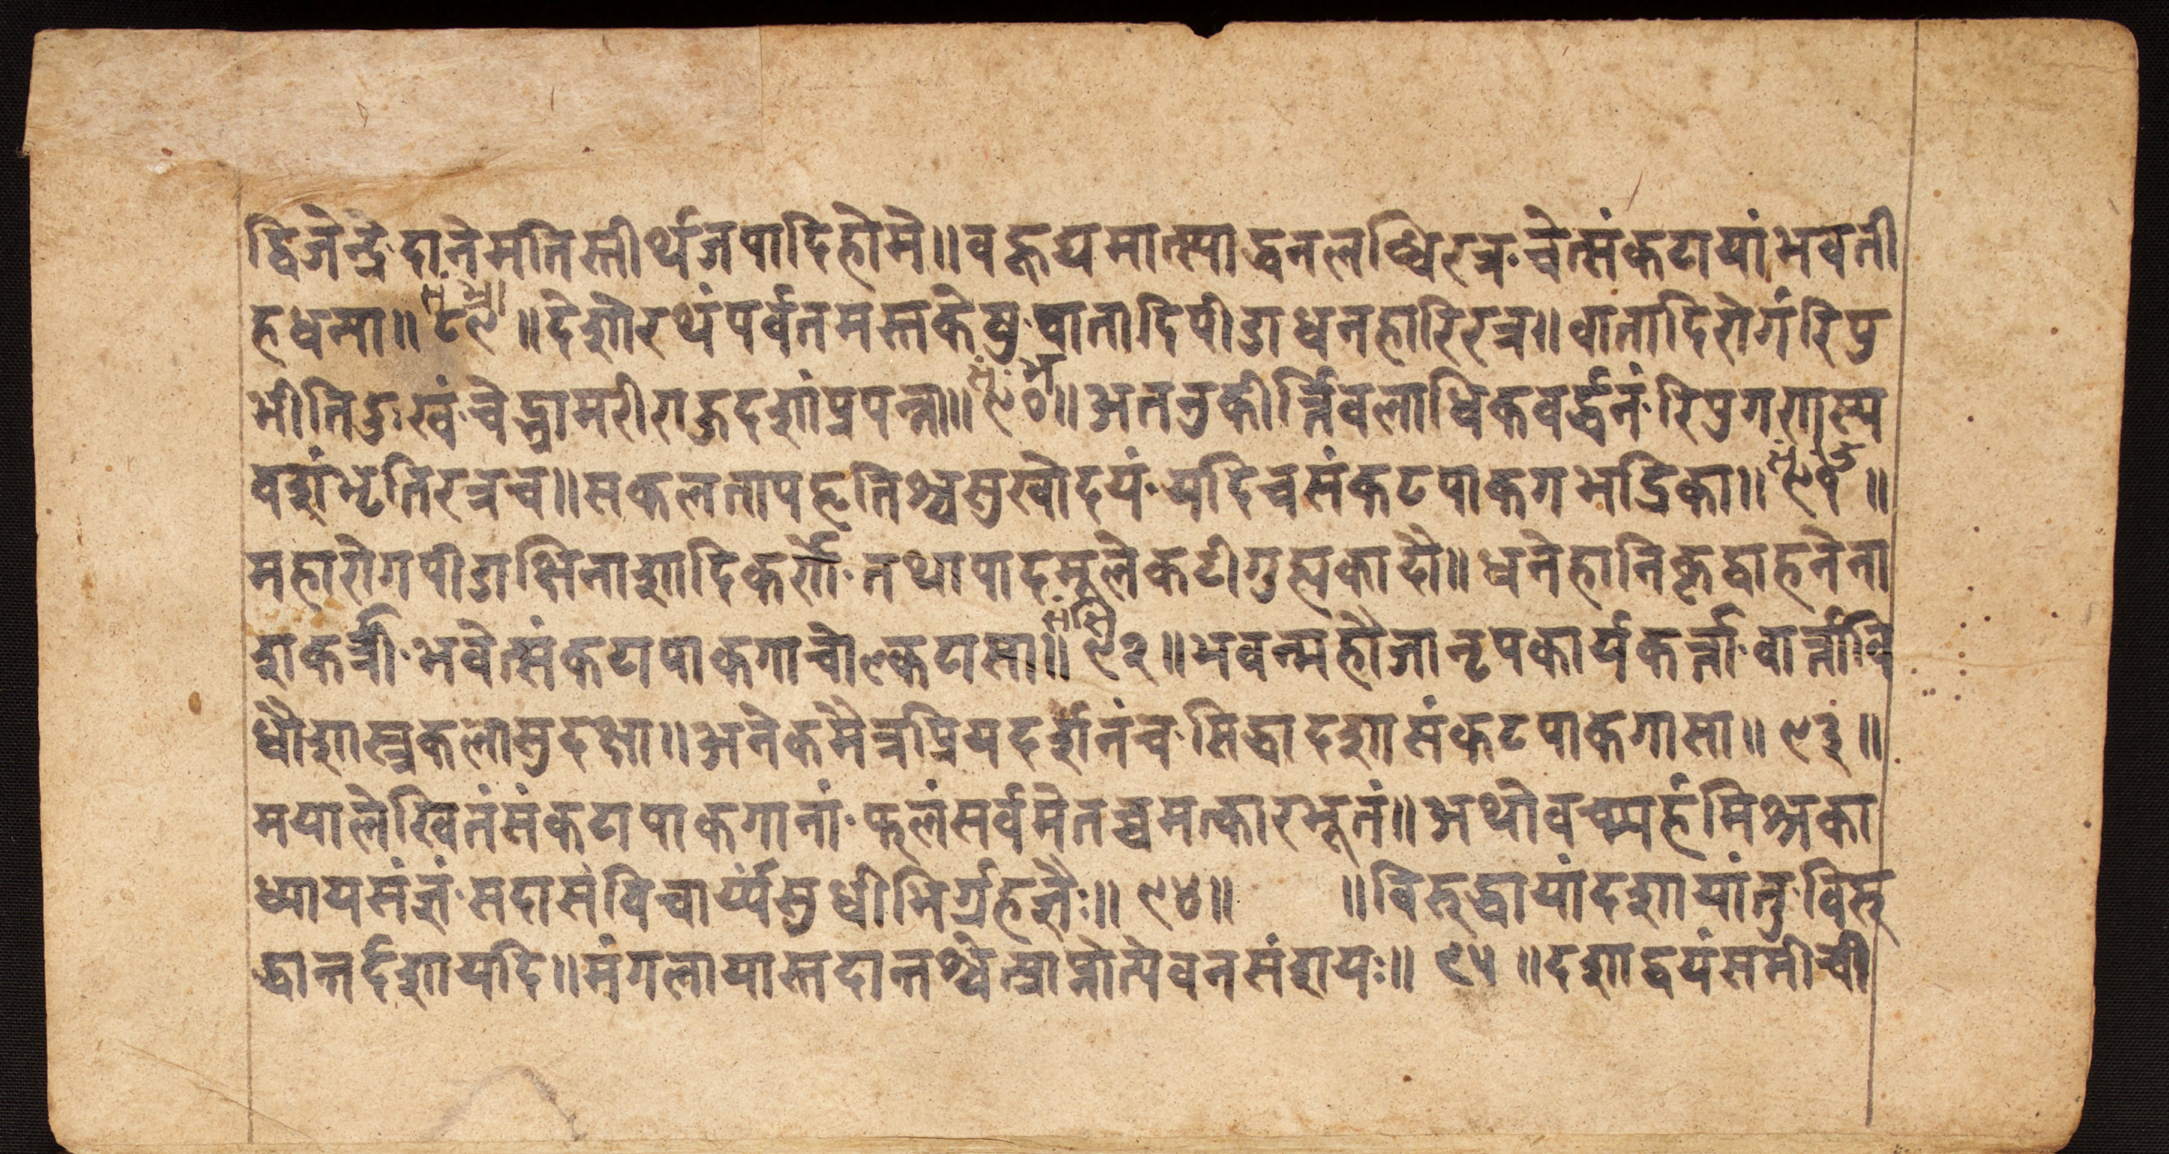 द्विजेन्द्रे दाने मतिस्तीर्थजपादिहोमे ॥ वह्रुद्यमात्स्याद्धनलब्धिरत्र चेत्संकटायां भवती
ह धन्या ॥ ८९ ॥ देशौरथं पर्वतमस्तकेषु वातादिपीडा धनहारिरत्र ॥ वातादिरोगं रिपु
भीतिदुःखं चेद्भ्रामरी राजदशां प्रपन्ना ॥ ९० ॥ अतनुकीर्त्तिवलाधिकवर्द्धनं रिपुगणस्य
वशं भृतिरत्र च ॥ सकलतापहृतिश्च सुखोदयं यदि च संकटपाकग भद्रिका ॥ ९१ ॥
महारोगपीडाक्षिनाशादिकर्णौ तथा पादमूले कटीगुह्यकादौ ॥ धने हानिकृद्वाहने ना
शकर्त्री भवेत्संकटापाकगा चोल्कटा सा ॥ ९२ ॥ भवन्महौजा नृपकार्यकर्त्ता वार्त्तावि
धौ शास्त्रकलासु दक्षा ॥ अनेकमैत्रप्रियदर्शनं च सिद्धादशा संकटपाकगा सा ॥ ९३ ॥
मया लेखितं संकटापाकगानां फलं सर्वमेतच्चमत्कारभूतं ॥ अथो वच्म्यहं मिश्रका
ध्यायसंज्ञं सदा संविचार्य्यं सुधीभिर्ग्रहज्ञैः ॥ ९४ ॥ ॥ विरुद्धायां दशायां तु विरु
द्धान्तर्दशा यदि ॥ मंगलायास्तदान्तश्चेत्प्राप्नोत्येव न संशयः ॥ ९५ ॥ दशाद्वयं समीची